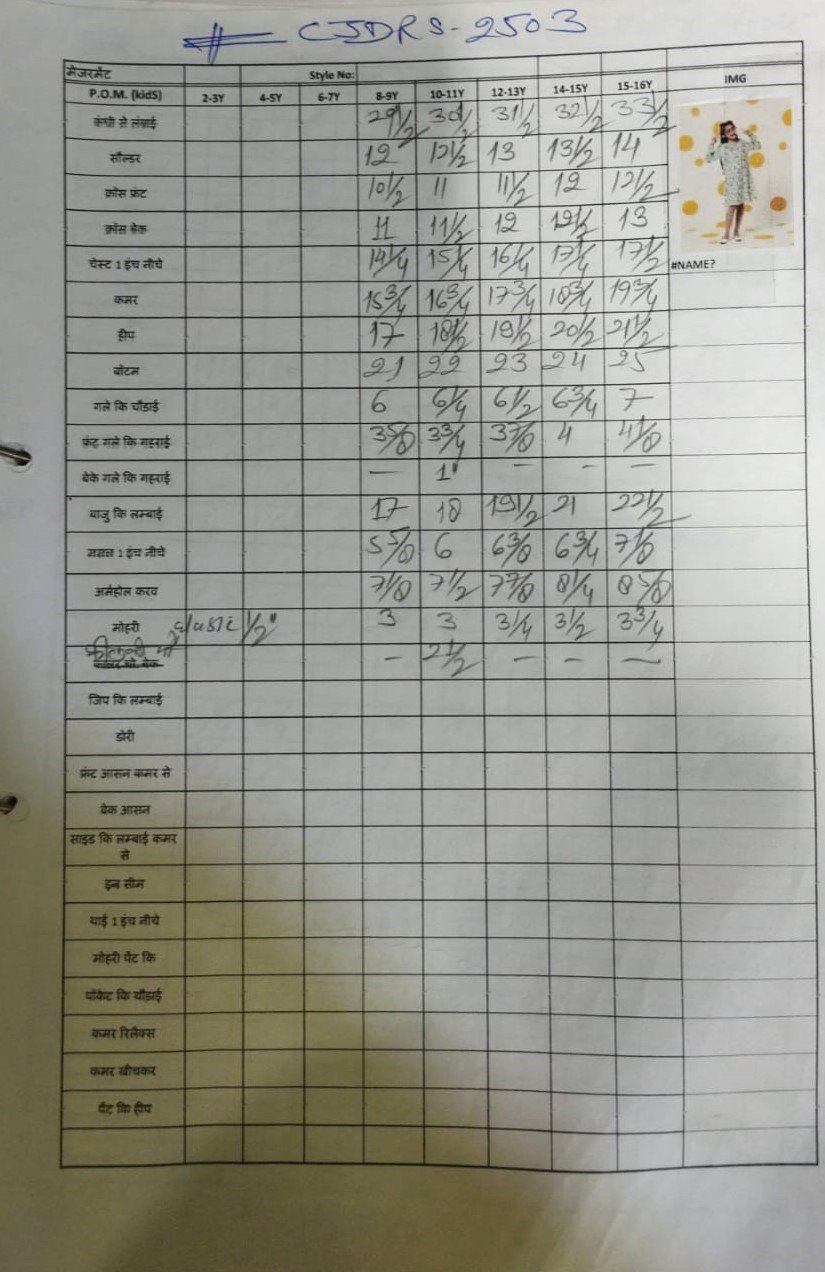 # CJDRS-2503
मेजरमेंट Style No:
P.O.M. (kidS) 2-3Y 4-5Y 6-7Y 8-9Y 10-11Y 12-13Y 14-15Y 15-16Y IMG
कंधी से लंबाई 29 1/2 30 1/2 31 1/2 32 1/2 33 1/2
सौल्डर 12 12 1/2 13 13 1/2 14
क्रोस फ्रंट 10 1/2 11 11 1/2 12 12 1/2
क्रॉस बेक 11 11 1/2 12 12 1/2 13
चेस्ट 1 इंच नीचे 14 1/4 15 1/4 16 1/4 17 1/4 17 1/2
#NAME?
कमर 15 3/4 16 3/4 17 3/4 18 3/4 19 3/4
हीप 17 18 1/2 19 1/2 20 1/2 21 1/2
बोटम 21 22 23 24 25
गले कि चौडाई 6 6 1/4 6 1/2 6 3/4 7
फ्रंट गले कि गहराई 3 5/8 3 3/4 3 7/8 4 4 1/8
बेके गले कि गहराई — 1" - - —
बाजु कि लम्बाई 17 18 19 1/2 21 22 1/2
मसल 1 इंच नीचे 5 5/8 6 6 3/8 6 3/4 7 1/8
अर्महोल करव 7 1/8 7 1/2 7 7/8 8 1/4 8 5/8
मोहरी elastic 1/2" 3 3 3 1/4 3 1/2 3 3/4
- 2 1/2 - - —
जिप कि लम्बाई
डोरी
फ्रंट आसन कमर से
बेक आसन
साइड कि लम्बाई कमर
से
इन सीन
थाई 1 इंच नीचे
मोहरी पेंट कि
पॉकेट कि चौडाई
कमर रिलैक्स
कमर खीचकर
पेंट कि हीप